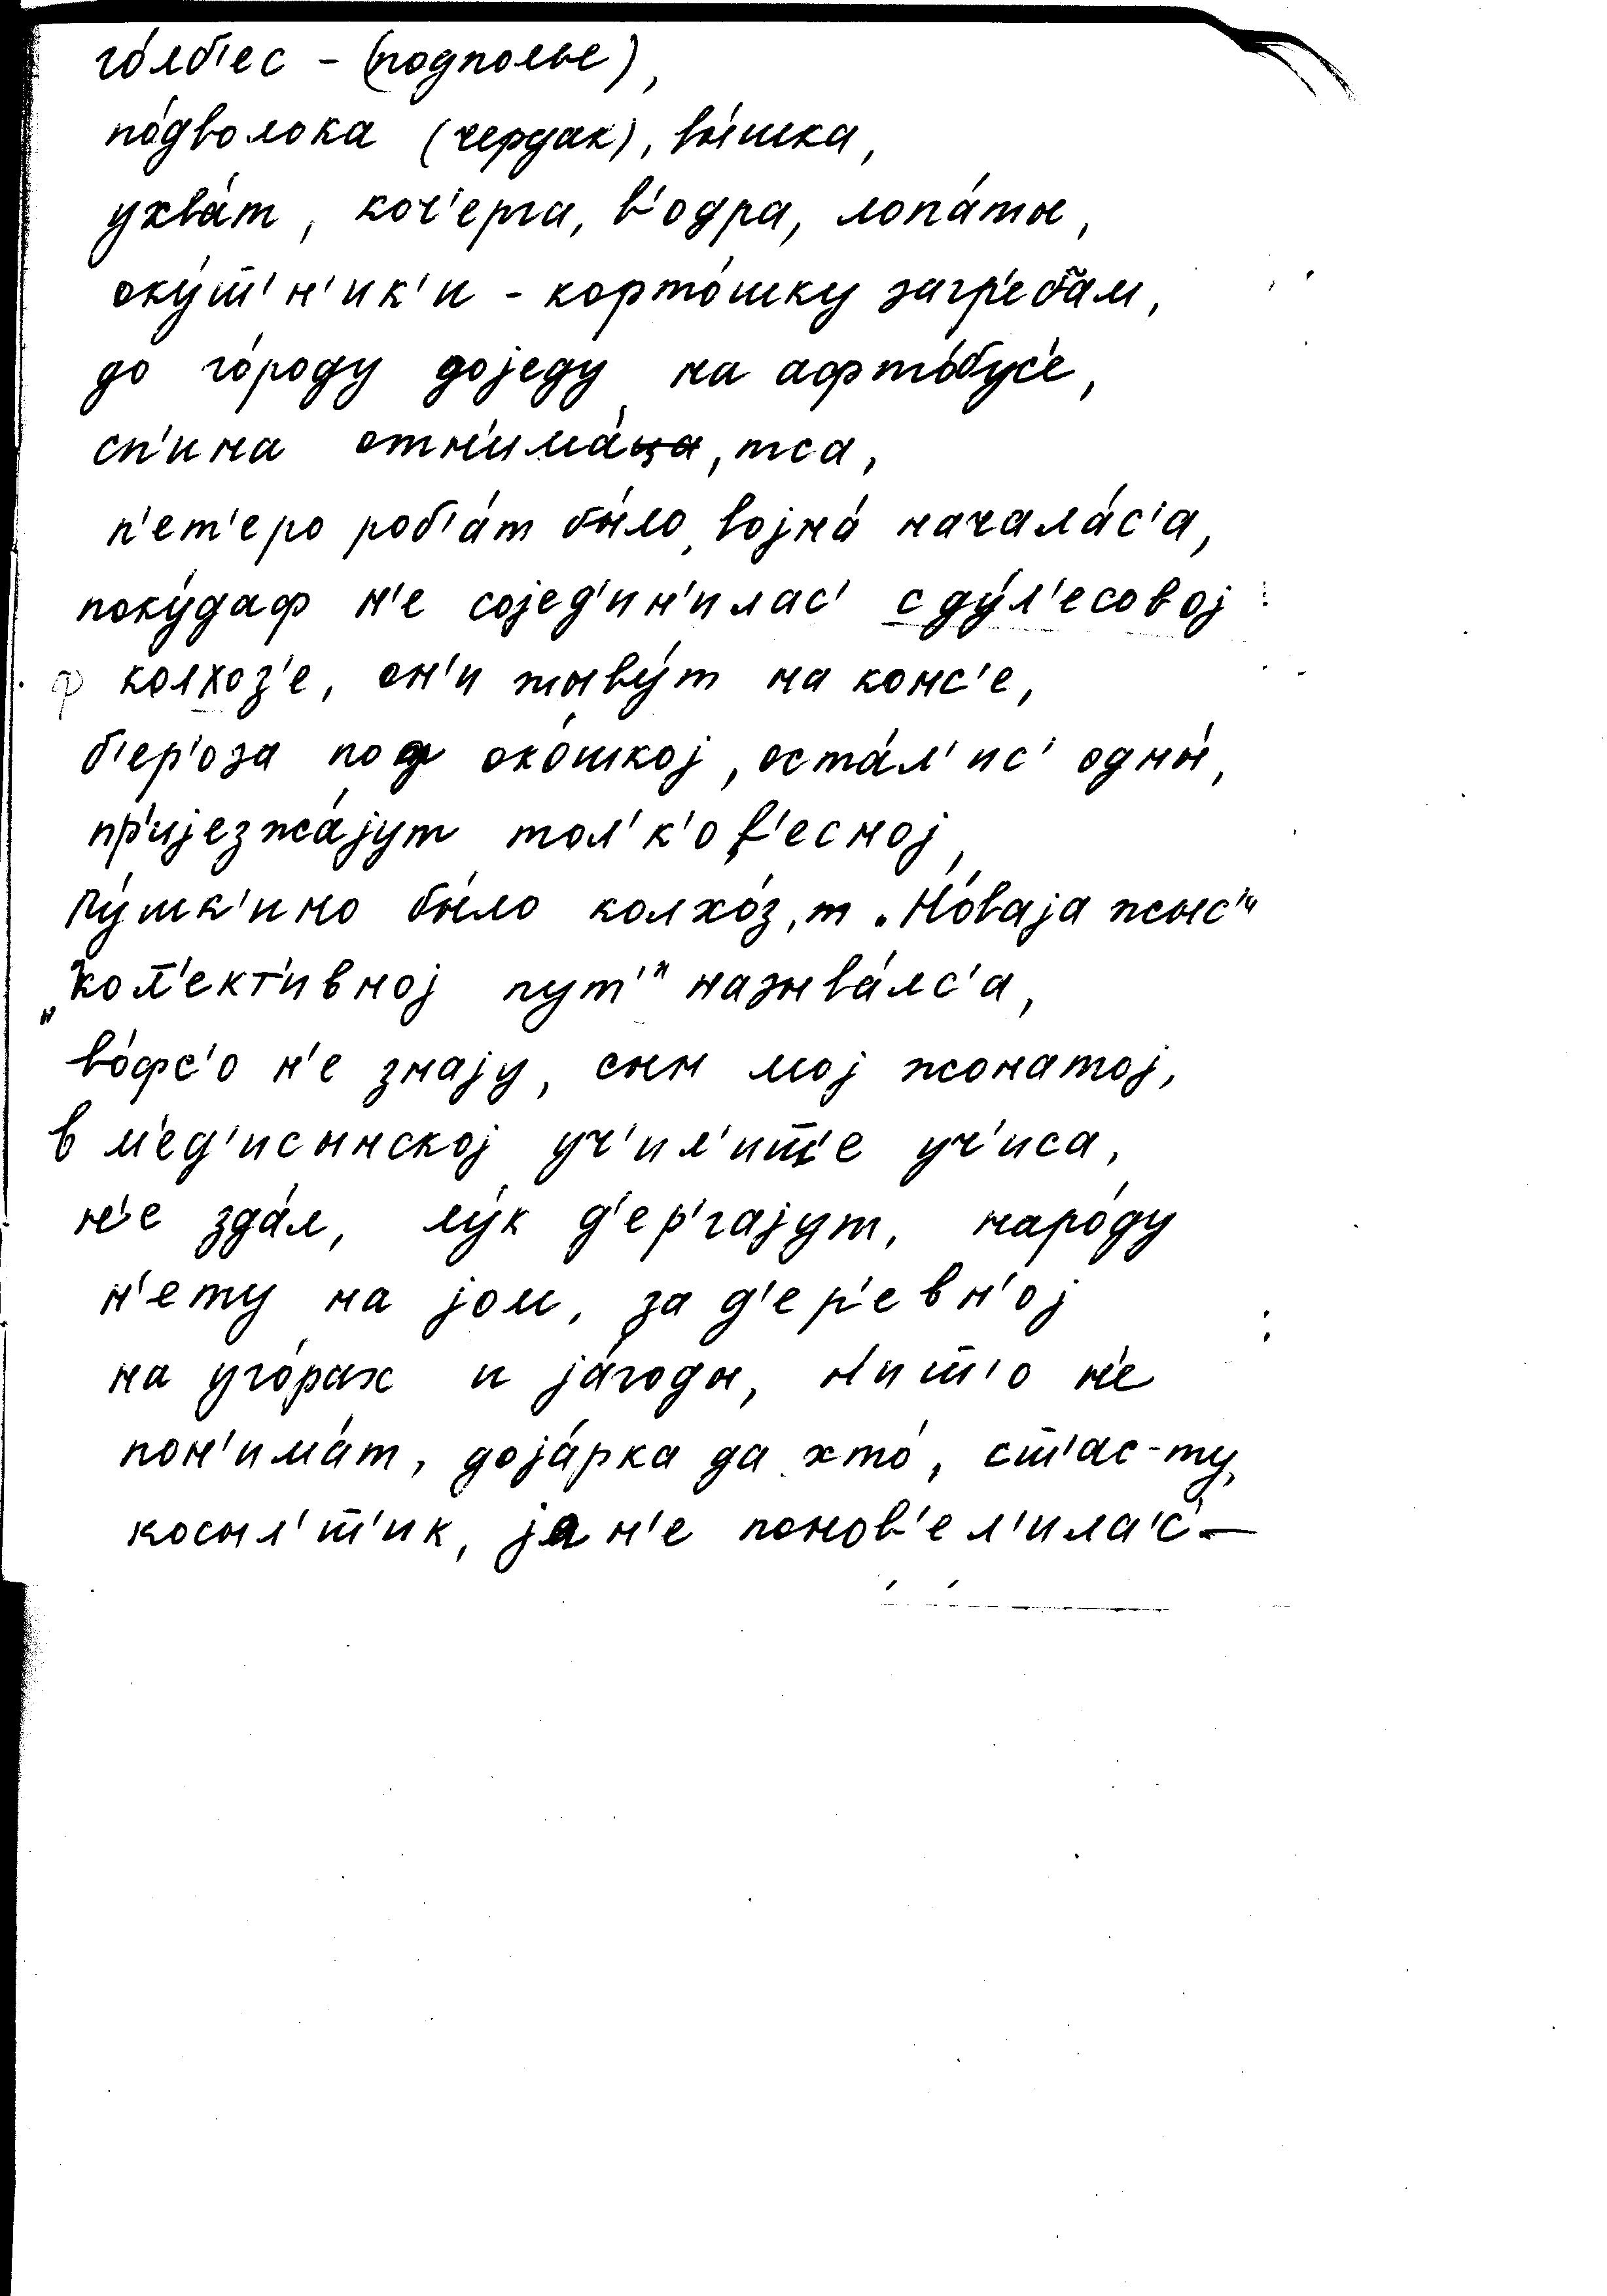 го́лб'ес - (подполье),
по́дволока (чердак), вы́шка,
ухва́т, коч'ерга, в'одра, лопа́ты,
оку́т'н'ик'и - корто́шку загр'еба̃м,
до го́роду доједу на афто́бус'е,
сп'ина отн'има́ца, тса,
п'ет'еро роб'а́т бы́ло, војна́ начала́с'а,
поку́даф н'е сојед'ин'илас' с ду́л'есовој
ф колхоз'е, он'и жыву́т на конс'е,
б'ер'оза под око́шкој, оста́л'ис' одны́,
пр'ијезжа́јут тол'к'о в'есној,
Пу́шк'ино бы́ло колхо́з, т „Но́ваја жыс'"
„кол'ект'ивној пут'" называ́лс'а,
во́фс'о н'е знају, сын мој жонатој,
в м'ед'исынској уч'ил'иш'е уч'иса,
н'е зда́л, лу́к д'ер'гајут, наро́ду
н'ету на јом, за д'ер'евн'ој
на уго́рах и ја́годы, н'ит'о н'е
пон'има́т, доја́рка да хто́, ст'ас-ту,
косыл'т'ик, ја н'е понов'ел'ила'с' —